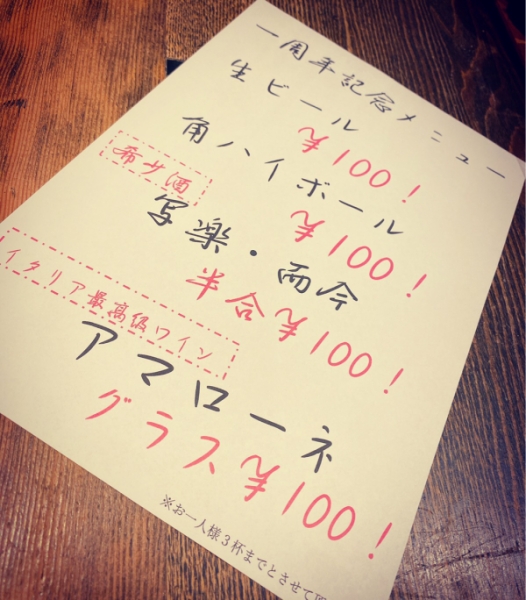 一周年記念メニュー
生ビール
¥100！
角ハイボール
¥100！
希少酒
写楽・而今
半合¥100！
イタリア最高級ワイン
アマローネ
グラス¥100！
※お一人様3杯までとさせて